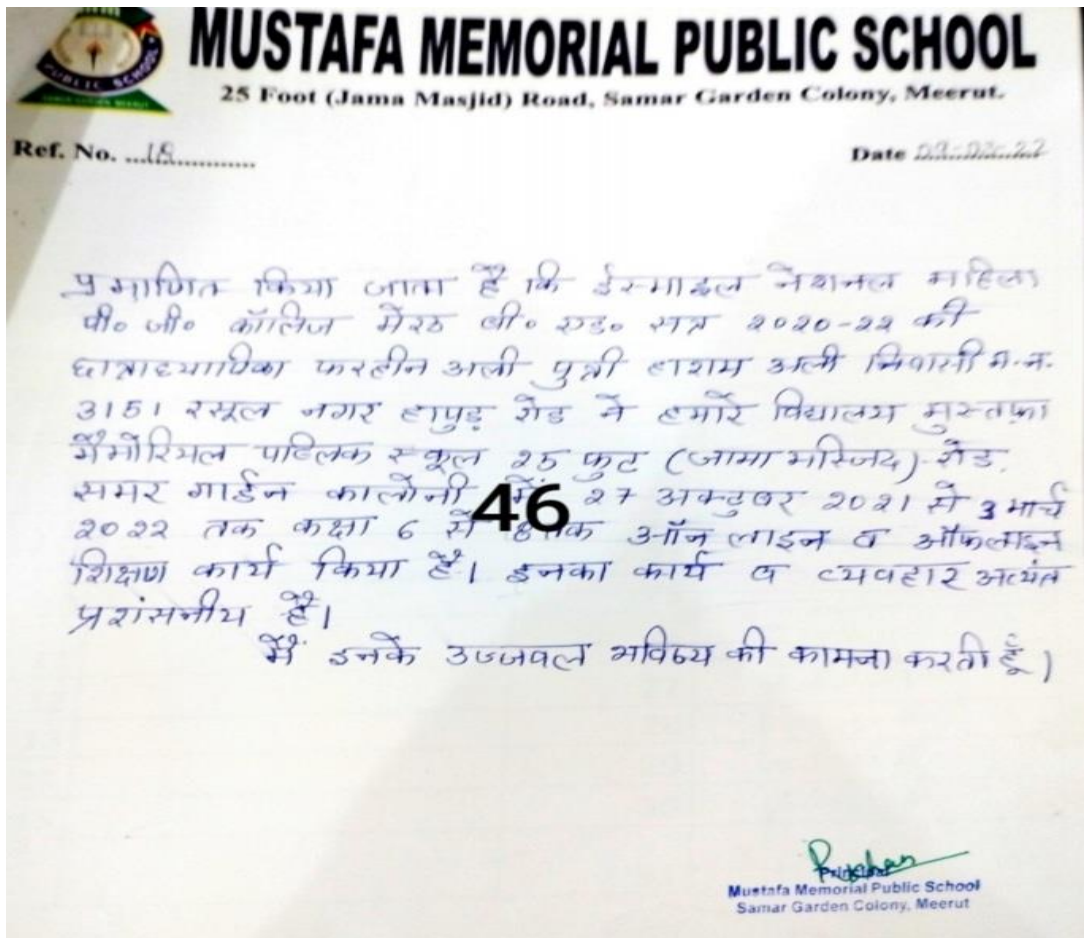 PUBLIC SCHOOL
SAMAR GARDEN MEERUT
MUSTAFA MEMORIAL PUBLIC SCHOOL
25 Foot (Jama Masjid) Road, Samar Garden Colony, Meerut.
Ref. No. ...18...............
Date 03-03-22
प्रमाणित किया जाता है कि ईस्माइल नेशनल महिला
पी० जी० कॉलिज मेरठ बी० एड० सत्र २०२०-२२ की
छात्राध्यापिका फरहीन अली पुत्री हाशम अली निवासी म.न.
3151 रसूल नगर हापुड़ रोड ने हमारे विद्यालय मुस्तफ़ा
मैमोरियल पब्लिक स्कूल 25 फुट (जामा मस्जिद) रोड,
समर गार्डन कालोनी में 27 अक्टुबर 2021 से 3 मार्च
46
2022 तक कक्षा 6 से 8 तक ऑन लाइन व ऑफलाइन
शिक्षण कार्य किया है। इनका कार्य व व्यवहार अत्यंत
प्रशंसनीय है।
मैं इनके उज्जवल भविष्य की कामना करती हूँ।
Mustafa Memorial Public School
Samar Garden Colony, Meerut